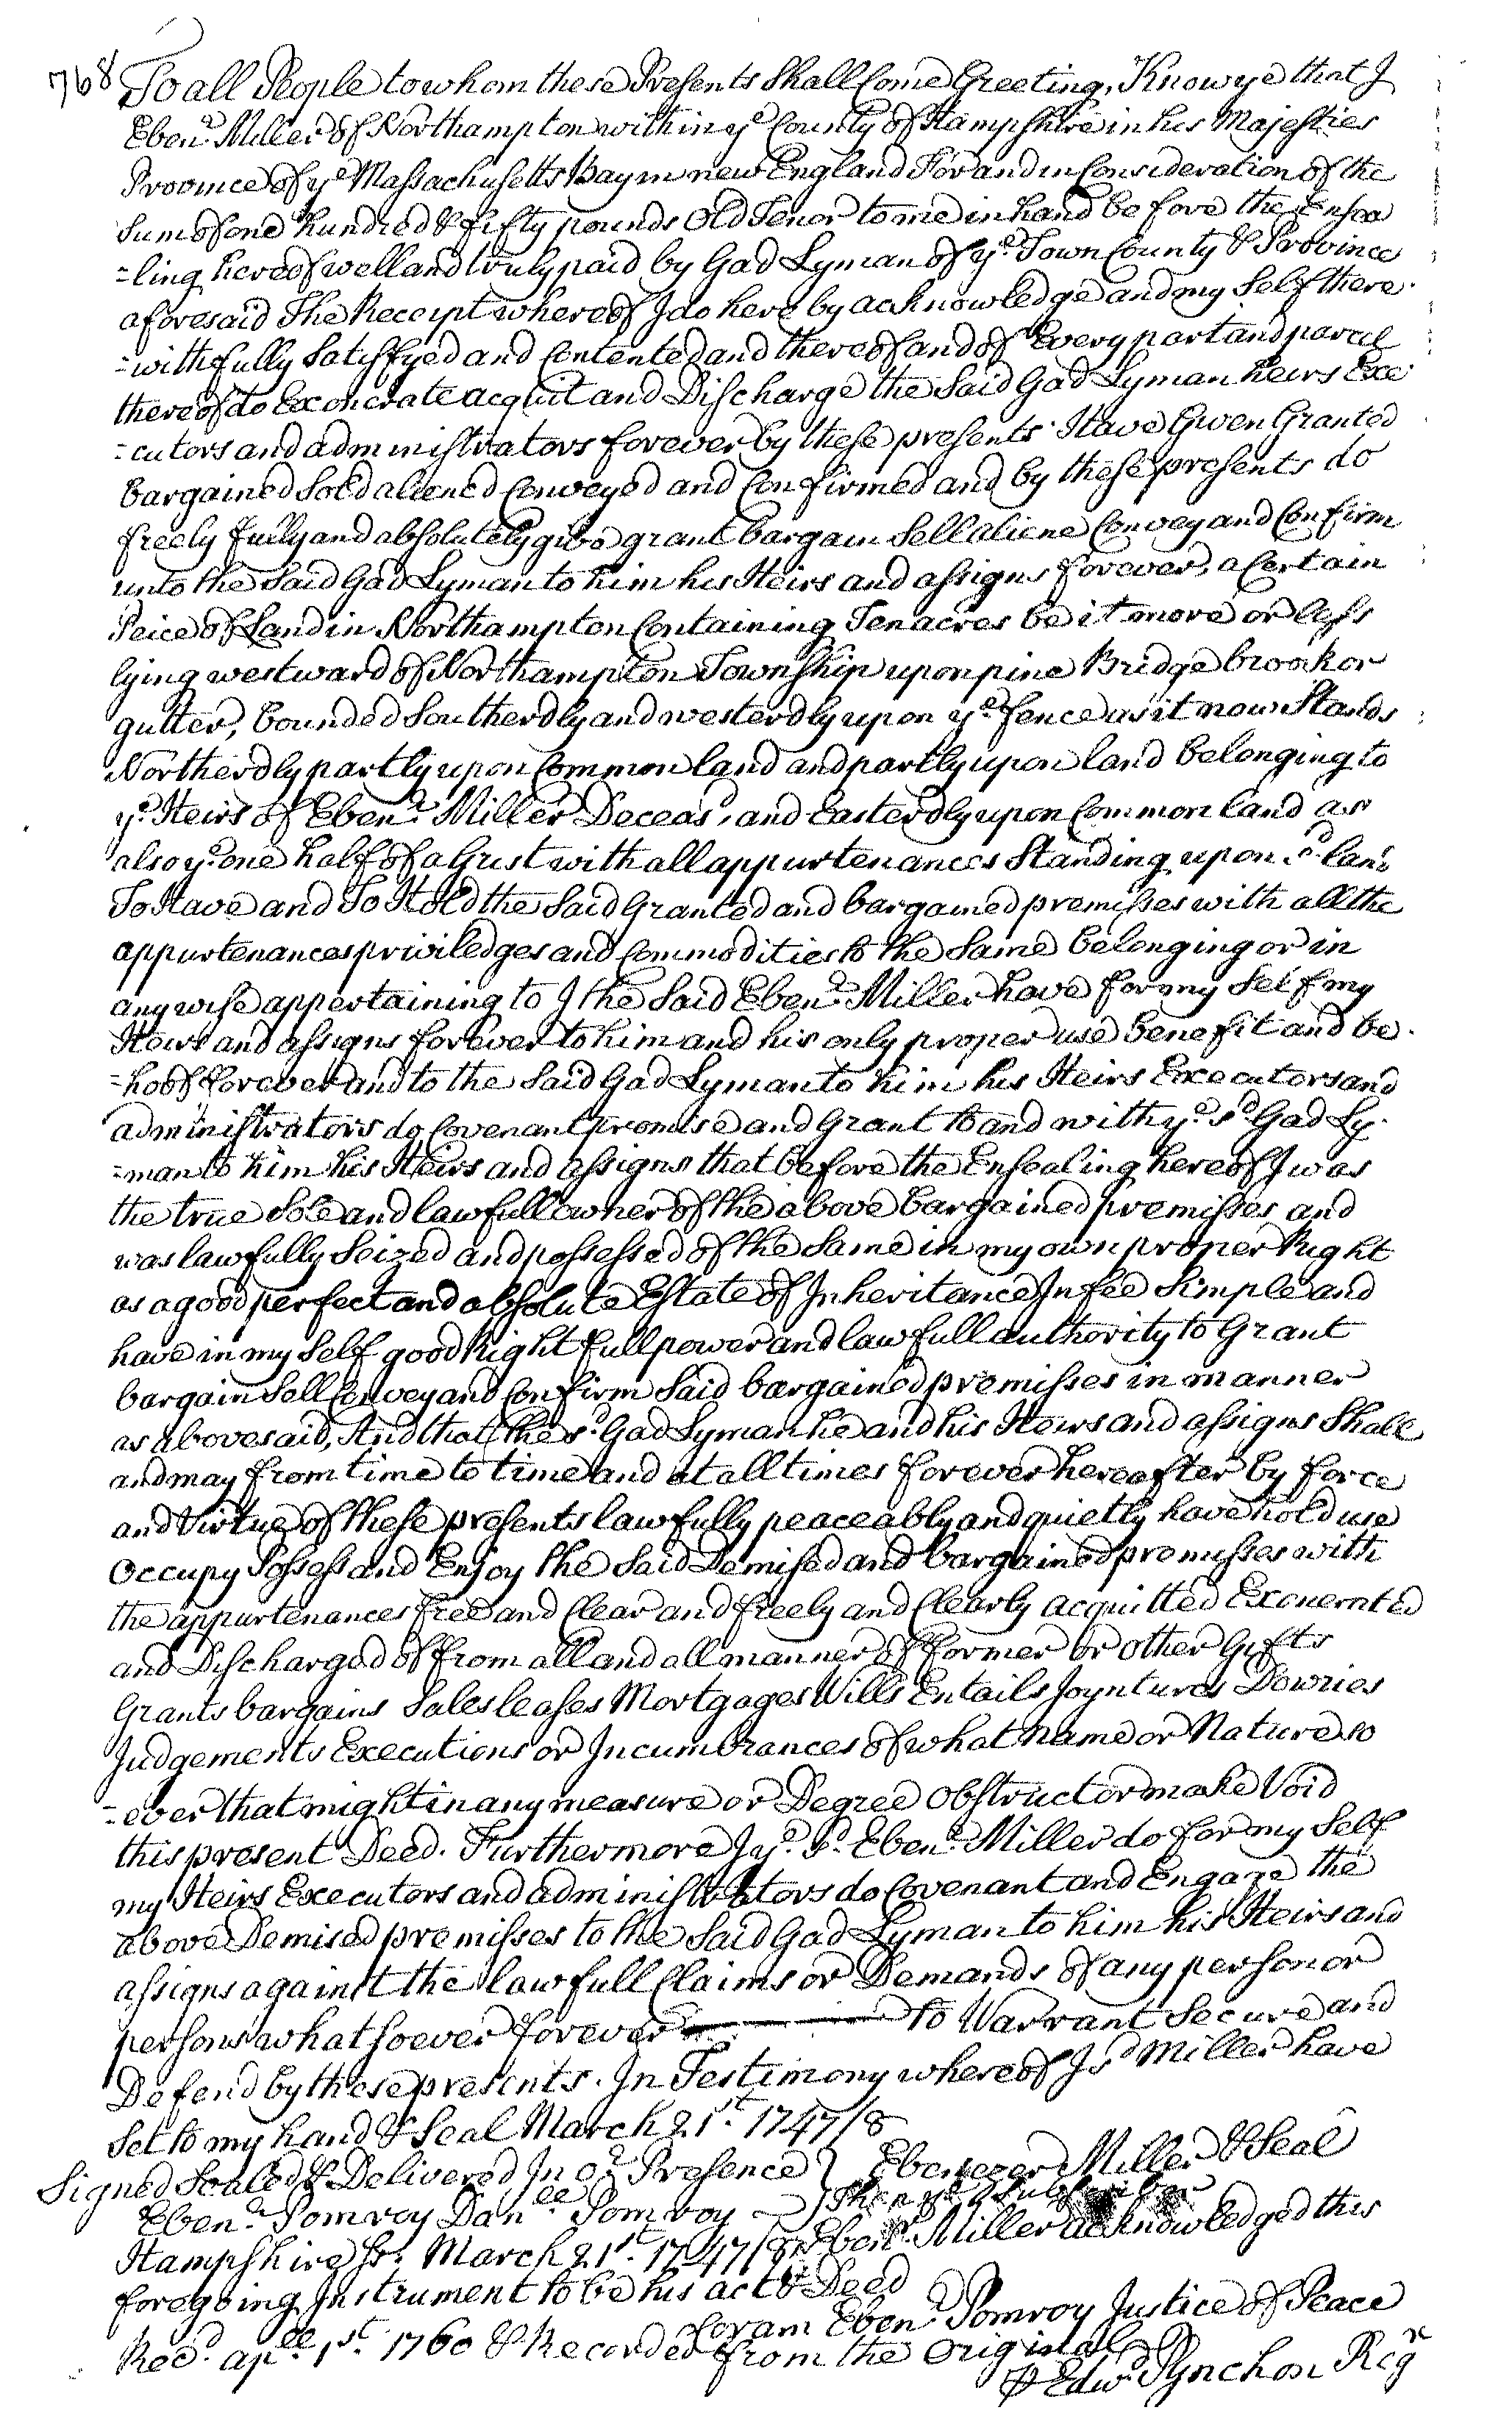 768 To all People to whom these Presents Shall Come Greeting, Know ye that I
Ebenr. Miller of Northampton within ye County of Hampshire in his Majesties
Province of ye Massachusetts Bay in new England For and in Consideration of the
Sum of one hundred & fifty pounds Old Tenor to me in hand before the Ensea
=ling hereof well and truly paid by Gad Lyman of ye. Town County & Province
aforesaid The Receipt whereof I do here by acknowledge and my Self there
=with fully Satisfyed and Contented and thereof and of Every part and parcel
thereof do Exonerate acquit and Discharge the Said Gad Lyman heirs Exe
=cutors and administrators forever by these presents Have Given Granted
bargained Sold aliened Conveyed and Confirmed and by these presents do
freely fully and absolutely give grant bargain Sell aliene Convey and Confirm
unto the Said Gad Lyman to him his Heirs and assigns forever, a Certain
Peice of Land in Northampton Containing Ten acres be it more or less
lying westward of Northampton Township upon pine Bridge brook or
gutter, bounded Southerdly and westerdly upon ye. fence as it now Stands
Northerdly partly upon Common land and partly upon land belonging to
ye. Heirs of Ebenr. Miller Deceasd, and Easterdly upon Common land as
also ye. one half of a Grist with all appurtenances Standing upon sd. land
To Have and To Hold the Said Granted and bargained premisses with all the
appurtenances priviledges and Commodities to the Same belonging or in
any wise appertaining to I the Said Ebenr. Miller have for my Self my
Heirs and assigns forever to him and his only proper use benefit and be
=hoof forever and to the Said Gad Lyman to him his Heirs Executors and
administrators do Covenant promise and Grant to and with ye. sd. Gad Ly
=man to him his Heirs and assigns that before the Ensealing hereof I was
the true Sole and lawfull owner of the above bargained premisses and
was lawfully Seized and possessed of the Same in my own proper Right
as a good perfect and absolute Estate of Inheritance In fee Simple and
have in my Self good Right full power and lawfull authority to Grant
bargain Sell Convey and Confirm Said bargained premisses in manner
as abovesaid, And that the sd. Gad Lyman he and his Heirs and assigns Shall
and may from time to time and at all times forever hereafter by force
and Virtue of these presents lawfully peaceably and quietly have hold use
Occupy Possess and Enjoy the Said Demised and bargained premisses with
the appurtenances free and Clear and freely and Clearly acquitted Exonerated
and Discharged of from all and all manner of former or other Gifts
Grants bargains Sales leases Mortgages Wills Entails Joyntures Dowries
Judgements Executions or Incumbrances of what Name or Nature so
=ever that might in any measure or Degree obstruct or make Void
this present Deed. Furthermore I ye. sd. Ebenr. Miller do for my Self
my Heirs Executors and administrators do Covenant and Engage the
above Demised premisses to the Said Gad Lyman to him his Heirs and
assigns against the lawfull Claims or Demands of any person or
persons whatsoever forever to Warrant Secure and
Defend by these presents. In Testimony whereof I sd Miller have
Set to my hand & Seal March 21st. 1747/8
Signed Sealed & Delivered In or. Presence } Ebenezer Miller & Seal
Ebenr. Pomroy Danll. Pomroy } Then ye Subscriber
Hampshire Ss. March 21st. 1747/8 Ebenr. Miller acknowledged this
foregoing Instrument to be his act & Deed
Coram Ebenr Pomroy Justice of Peace
Recd. apll. 1st. 1760 & Recorded from the Original
⅌ Edwd. Pynchon Regr